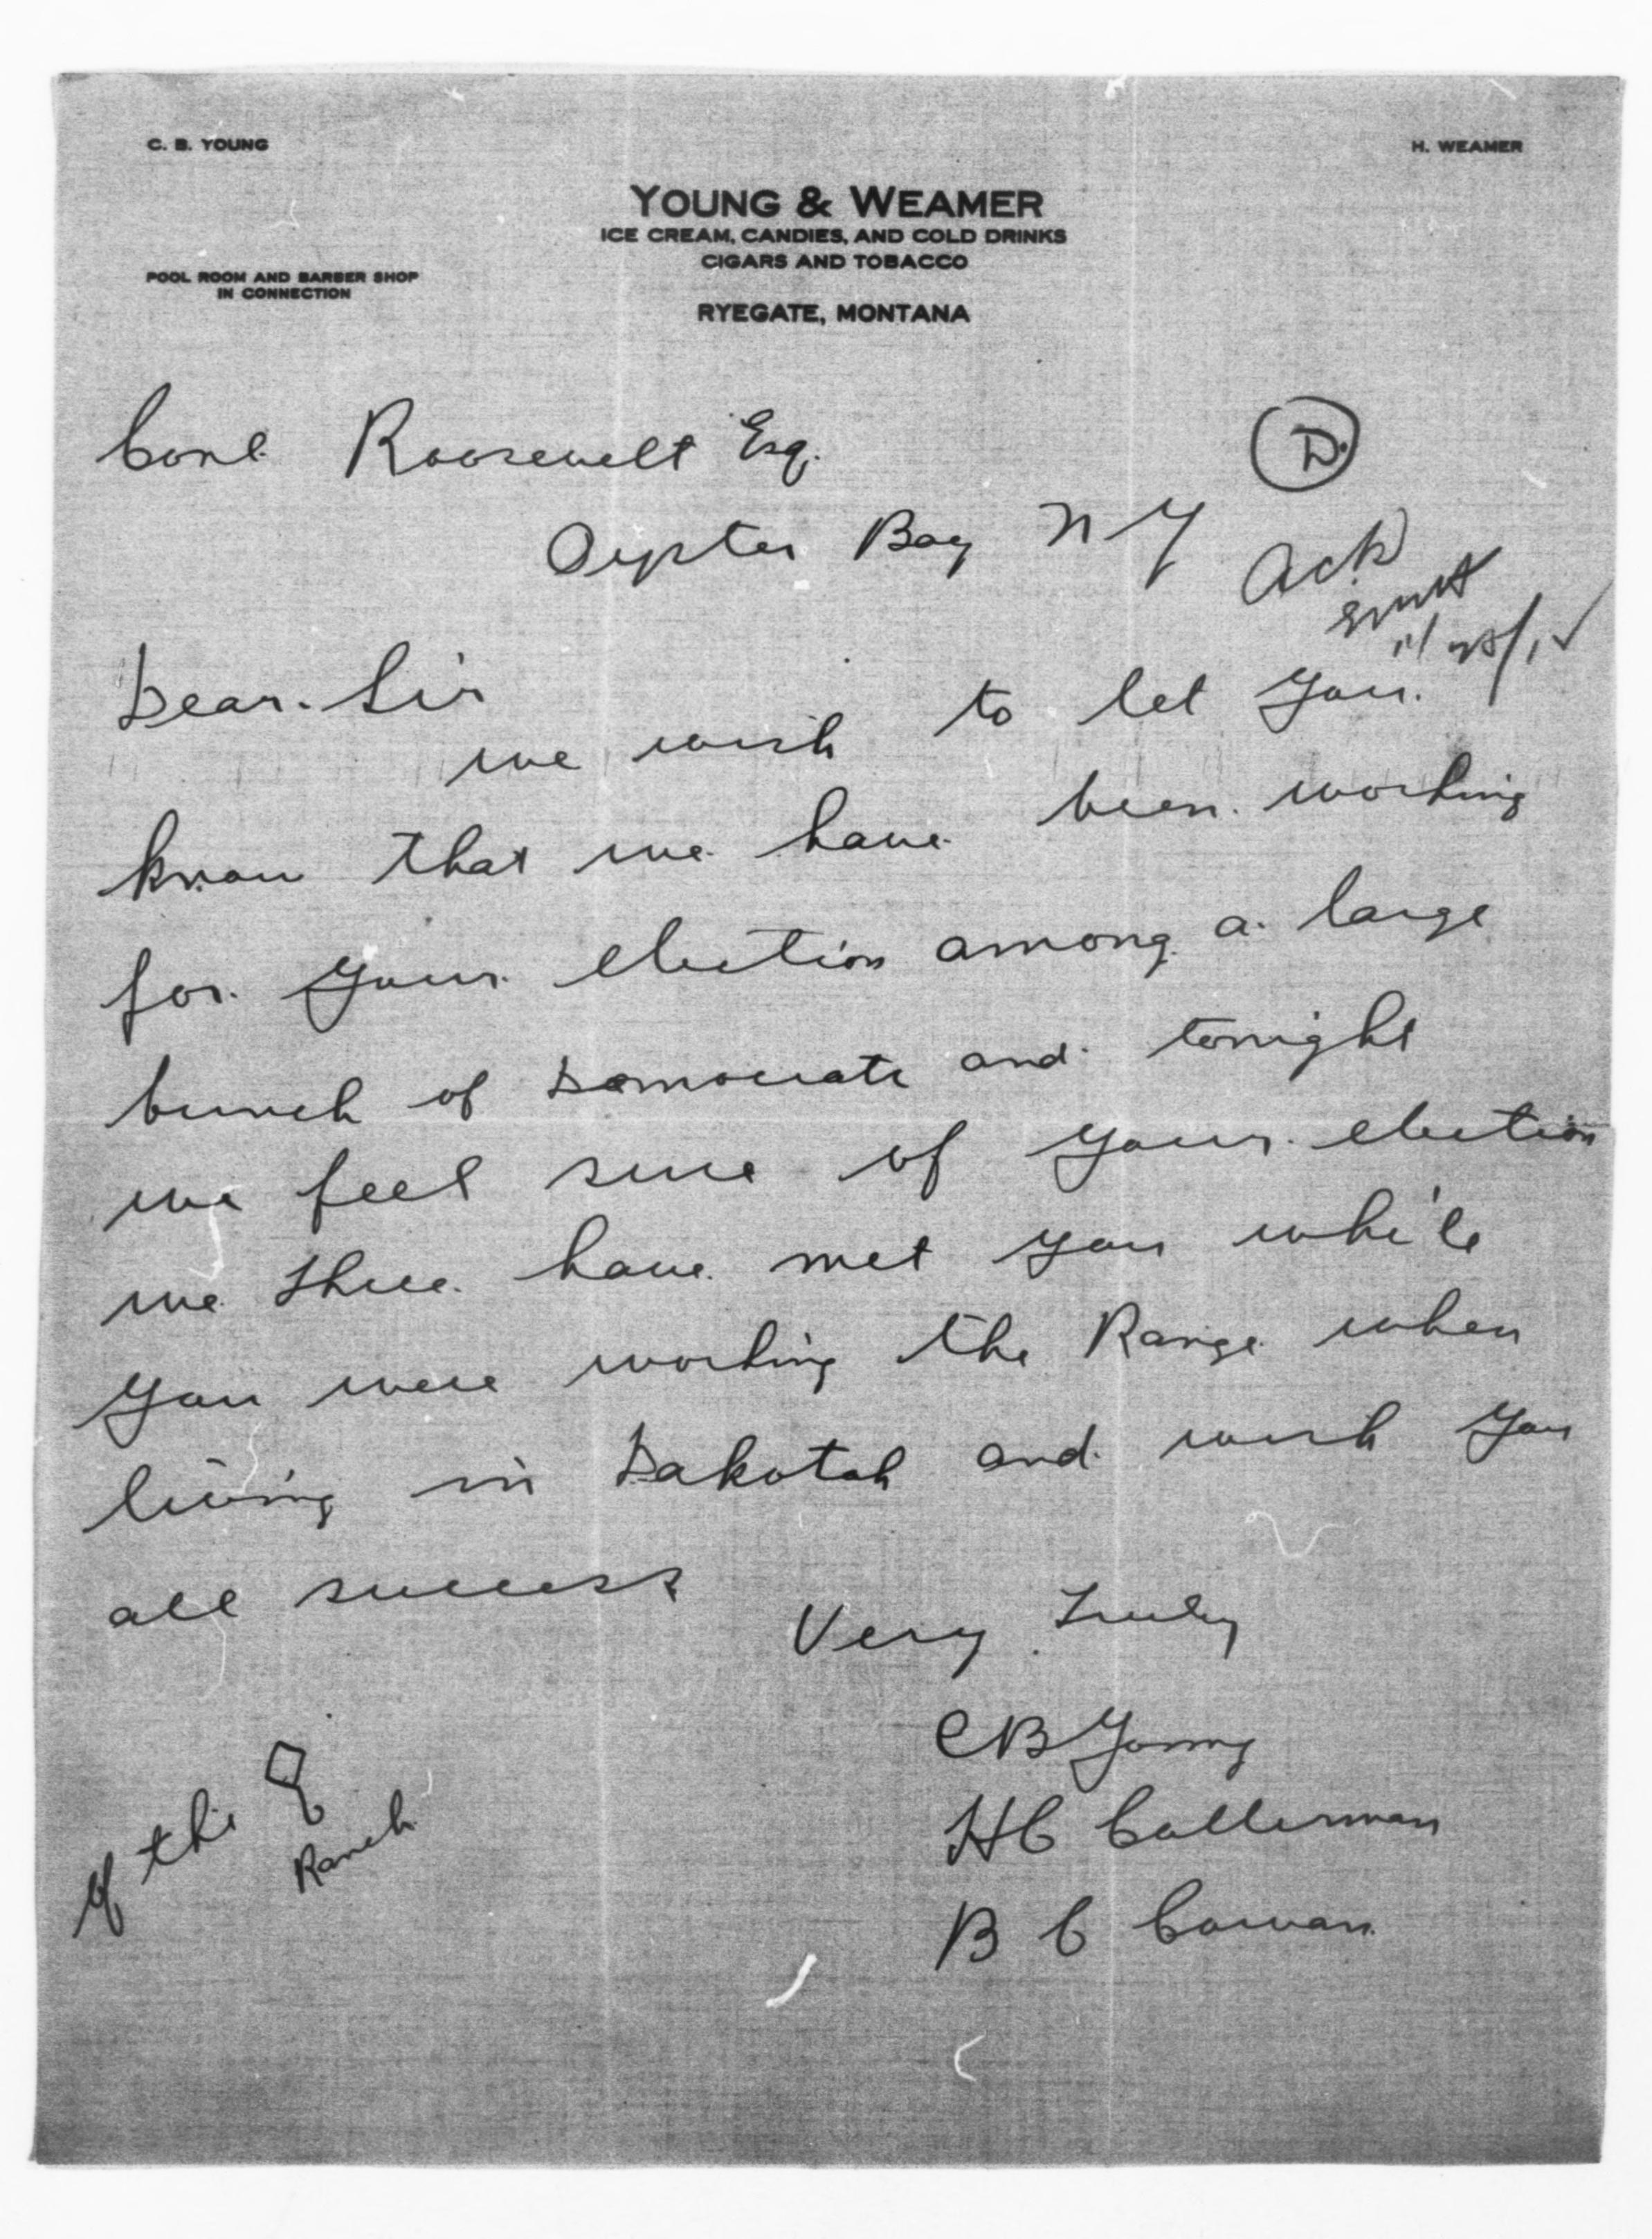 C. B. YOUNG
H. WEAMER
YOUNG & WEAMER
ICE CREAM, CANDIES, AND COLD DRINKS
CIGARS AND TOBACCO
POOL ROOM AND BARBER SHOP
IN CONNECTION
RYEGATE, MONTANA
Conl. Roosevelt Esq.
D.
Oyster Bay N Y
Ack
Dear. Sir
we wish to let you.
know that we have been working
for your election among a large
bunch of Democrats and tonight
we feel sure of your election
we three have met you while
you were working the Range when
living in Dakotah and wish you
all success
Very Truly
C B Young
H C Collerman
B C Cowan
of the
Ranch